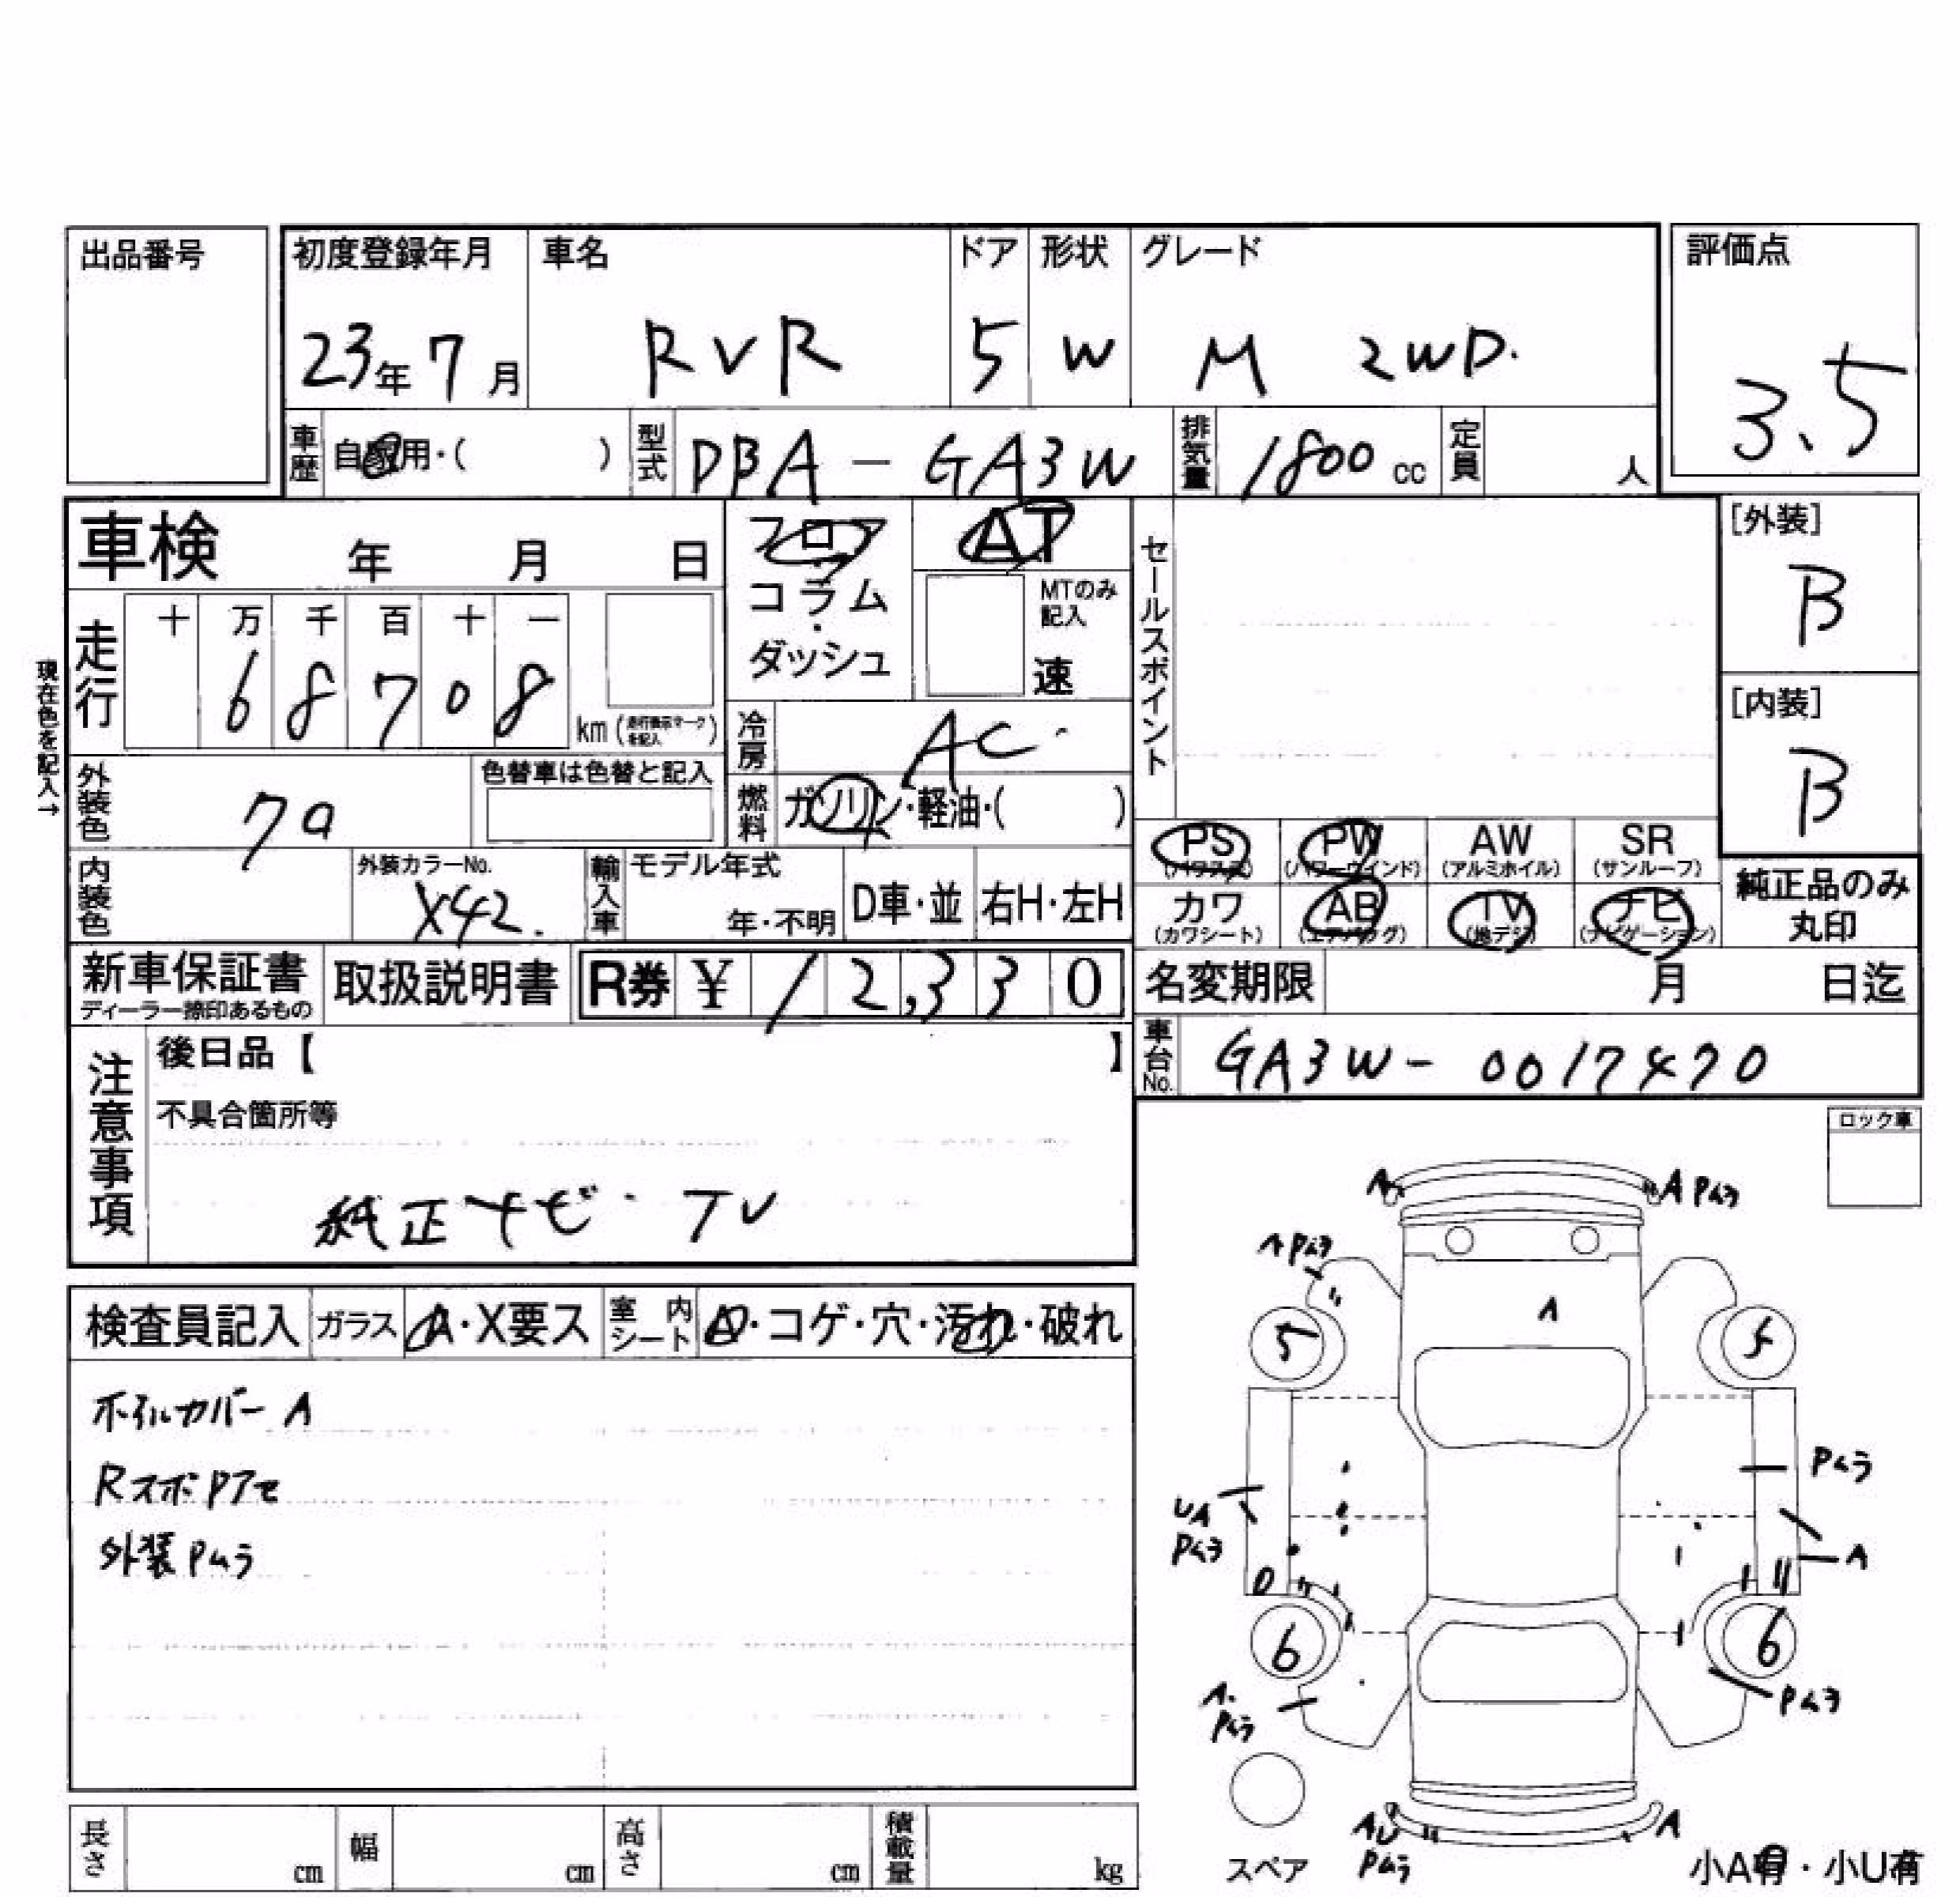 出品番号
初度登録年月 車名 ドア 形状 グレード 評価点
23年7月 RVR 5 W M 2WD. 3.5
車歴 自家用・( ) 型式 DBA-GA3W 排気量 1800cc 定員 人
車検 年 月 日
フロア
コラム
・
ダッシュ
AT
MTのみ記入
速
セールスポイント
[外装]
B
[内装]
B
走行 十 万 千 百 十 一
6 8 7 0 8 km(走行表示マークを記入)
現在色を記入→
冷房 AC.
外装色 色替車は色替と記入
燃料 ガソリン・軽油・( )
PS (パワステ) PW (パワーウインド) AW (アルミホイル) SR (サンルーフ)
カワ (カワシート) AB (エアバッグ) TV (地デジ) ナビ (ナビゲーション)
純正品のみ
丸印
内装色 外装カラーNo. X42. 輸入車 モデル年式 年・不明 D車・並 右H・左H
新車保証書 取扱説明書 R券 ¥ 12,330 名変期限 月 日迄
ディーラー捺印あるもの
車台No. GA3W-0017470
注意事項
後日品【 】
不具合箇所等
純正ナビ・TV
ロック車
検査員記入 ガラス A・X要ス 室内シート A・コゲ・穴・汚れ・破れ
ホイルカバー A
Rスポ Pアセ
外装 Pムラ
A A Pムラ
A Pムラ
A
5 5
Pムラ
UA
Pムラ
A
6 6
A.
Pムラ
Pムラ
AU
Pムラ
A
スペア
小A有・小U有
長さ cm 幅 cm 高さ cm 積載量 kg